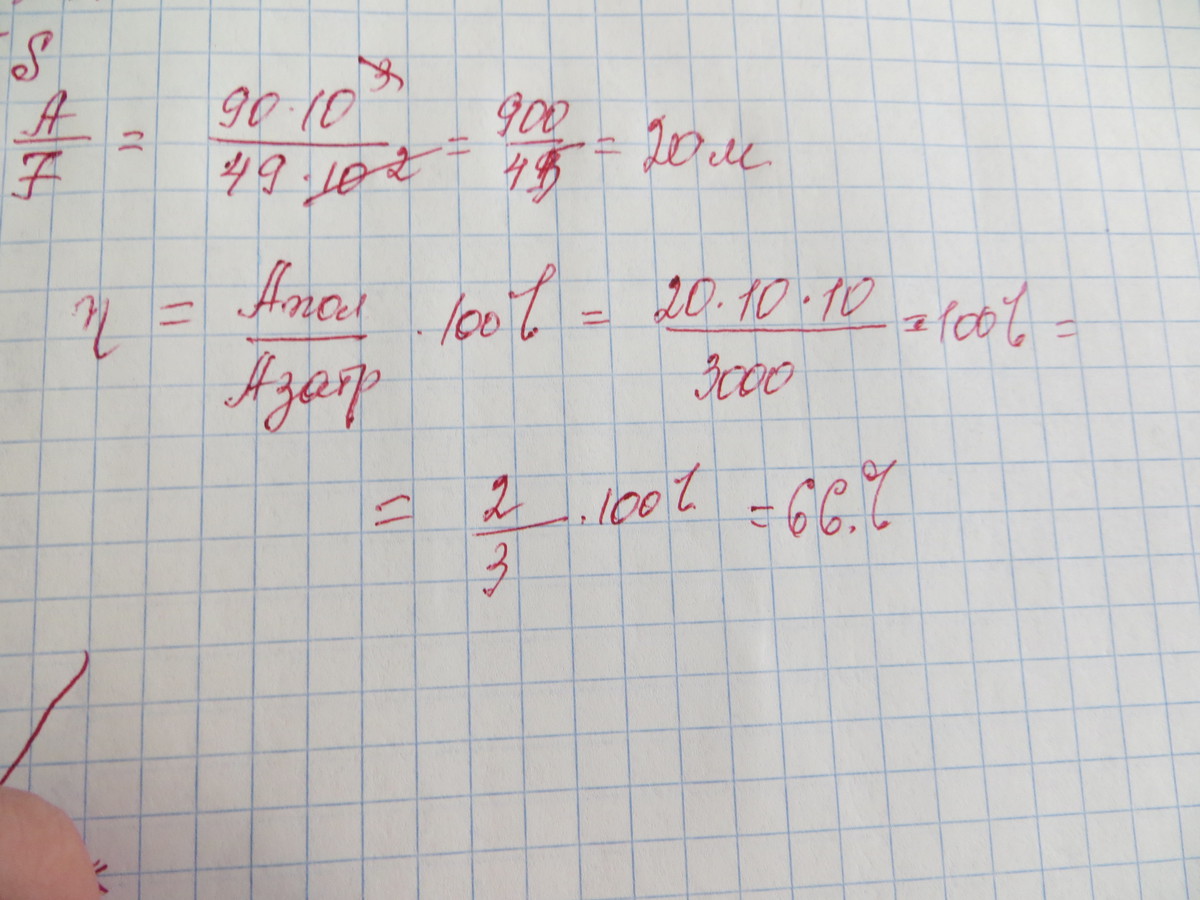 S
A/F = 90·10³/49·10² = 900/45 = 20 м
η = Апол/Азатр · 100% = 20·10·10/3000 · 100% =
= 2/3 · 100% = 66.%